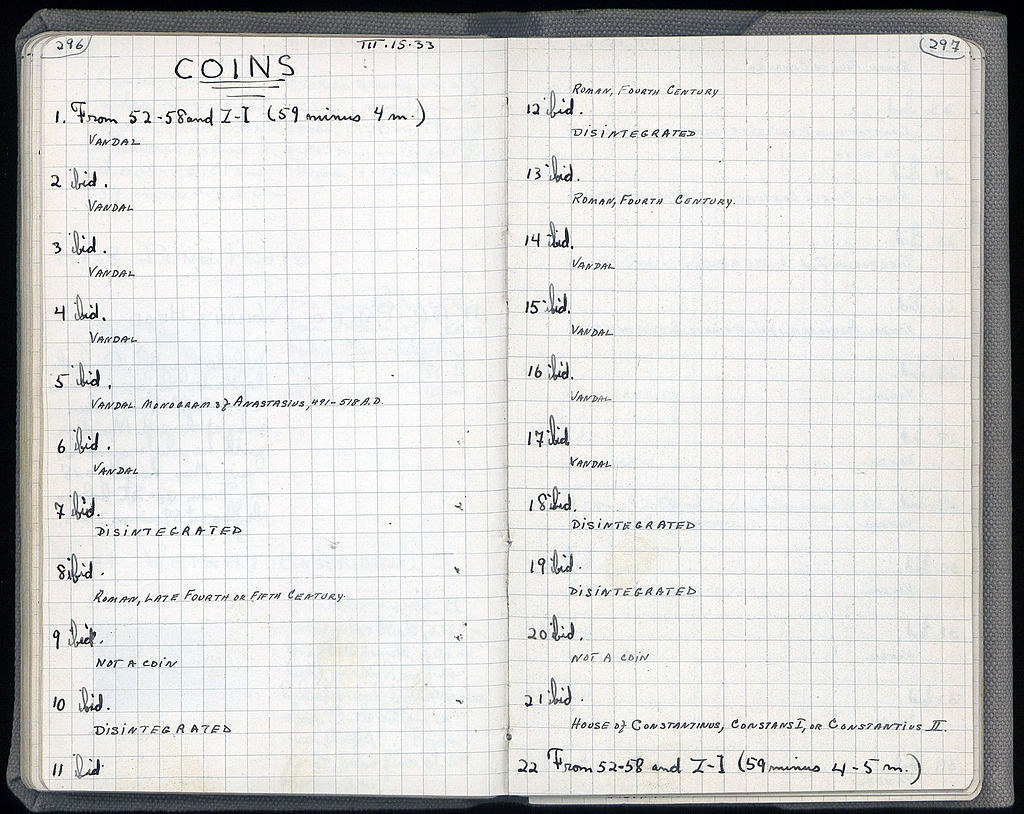 296
III.15.33
COINS
1. From 52-58 and Z-I (59 minus 4 m.)
VANDAL
2 ibid.
VANDAL
3 ibid.
VANDAL
4 ibid.
VANDAL
5 ibid.
VANDAL. MONOGRAM of ANASTASIUS, 491-518 A.D.
6 ibid.
VANDAL
7 ibid.
DISINTEGRATED
8 ibid.
ROMAN, LATE FOURTH OR FIFTH CENTURY.
9 ibid.
NOT A COIN
10 ibid.
DISINTEGRATED
11 ibid
297
ROMAN, FOURTH CENTURY
12 ibid.
DISINTEGRATED
13 ibid.
ROMAN, FOURTH CENTURY.
14 ibid.
VANDAL
15 ibid.
VANDAL
16 ibid.
VANDAL
17 ibid
VANDAL
18 ibid.
DISINTEGRATED
19 ibid.
DISINTEGRATED
20 ibid.
NOT A COIN
21 ibid.
HOUSE of CONSTANTINUS, CONSTANS I, OR CONSTANTIUS II.
22 From 52-58 and Z-I (59 minus 4-5 m.)